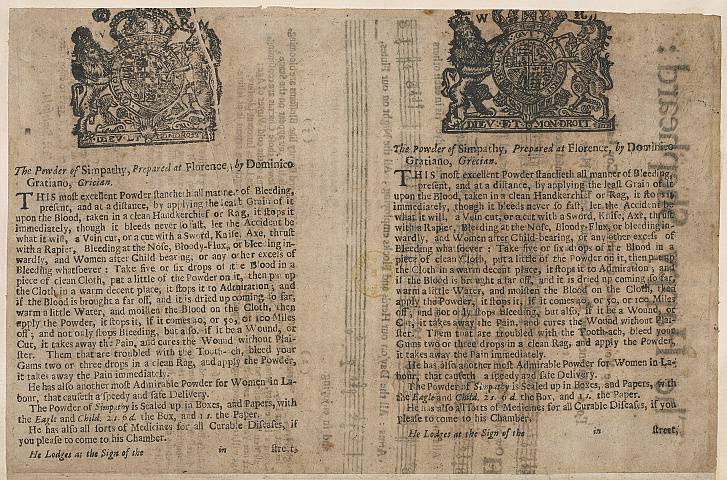 W R
DIEV ET MON DROIT
The Powder of Simpathy, Prepared at Florence, by Dominico
Gratiano, Grecian.
THIS most excellent Powder stancheth all manner of Bleeding,
present, and at a distance, by applying the least Grain of it
upon the Blood, taken in a clean Handkerchief or Rag, it stops it
immediately, though it bleeds never so fast, let the Accident be
what it will, a Vein cut, or a cut with a Sword, Knife, Axe, thrust
with a Rapier, Bleeding at the Nose, Bloody-Flux, or bleeding in-
wardly, and Women after Child-bearing, or any other excess of
Bleeding whatsoever : Take five or six drops of the Blood in a
piece of clean Cloth, put a little of the Powder on it, then put up
the Cloth, in a warm decent place, it stops it to Admiration ; and
if the Blood is brought a far off, and it is dried up coming so far,
warm a little Water, and moisten the Blood on the Cloth, then
apply the Powder, it stops it, if it comes 20, or 50, or 100 Miles
off ; and not only stops Bleeding, but also, if it be a Wound, or
Cut, it takes away the Pain, and cures the Wound without Plai-
ster. Them that are troubled with the Tooth-ach, bleed your
Gums two or three drops in a clean Rag, and apply the Powder,
it takes away the Pain immediately.
He has also another most Admirable Powder for Women in La-
bour, that causeth a speedy and safe Delivery.
The Powder of Simpathy is Sealed up in Boxes, and Papers, with
the Eagle and Child, 2 s. 6 d. the Box, and 1 s. the Paper.
He has also all sorts of Medicines for all Curable Diseases, if
you please to come to his Chamber.
He Lodges at the Sign of the in street,
W R
DIEV·ET MON·DROIT
The Powder of Simpathy, Prepared at Florence, by Dominico
Gratiano, Grecian.
THIS most excellent Powder stancheth all manner of Bleeding,
present, and at a distance, by applying the least Grain of it
upon the Blood, taken in a clean Handkerchief or Rag, it stops it
immediately, though it bleeds never so fast, let the Accident be
what it will, a Vein cut, or a cut with a Sword, Knife, Axe, thrust
with a Rapier, Bleeding at the Nose, Bloody-Flux, or bleeding in-
wardly, and Women after Child-bearing, or any other excess of
Bleeding whatsoever : Take five or six drops of the Blood in a
piece of clean Cloth, put a little of the Powder on it, then put up
the Cloth in a warm decent place, it stops it to Admiration ; and
if the Blood is brought a far off, and it is dried up coming so far,
warm a little Water, and moisten the Blood on the Cloth, then
apply the Powder, it stops it, if it comes 20, or 50, or 100 Miles
off ; and not only stops Bleeding, but also, if it be a Wound, or
Cut, it takes away the Pain, and cures the Wound without Plai-
ster. Them that are troubled with the Tooth-ach, bleed your
Gums two or three drops in a clean Rag, and apply the Powder,
it takes away the Pain immediately.
He has also another most Admirable Powder for Women in La-
bour, that causeth a speedy and safe Delivery.
The Powder of Simpathy is Sealed up in Boxes, and Papers, with
the Eagle and Child, 2 s. 6 d. the Box, and 1 s. the Paper.
He has also all sorts of Medicines for all Curable Diseases, if you
please to come to his Chamber.
He Lodges at the Sign of the in street,